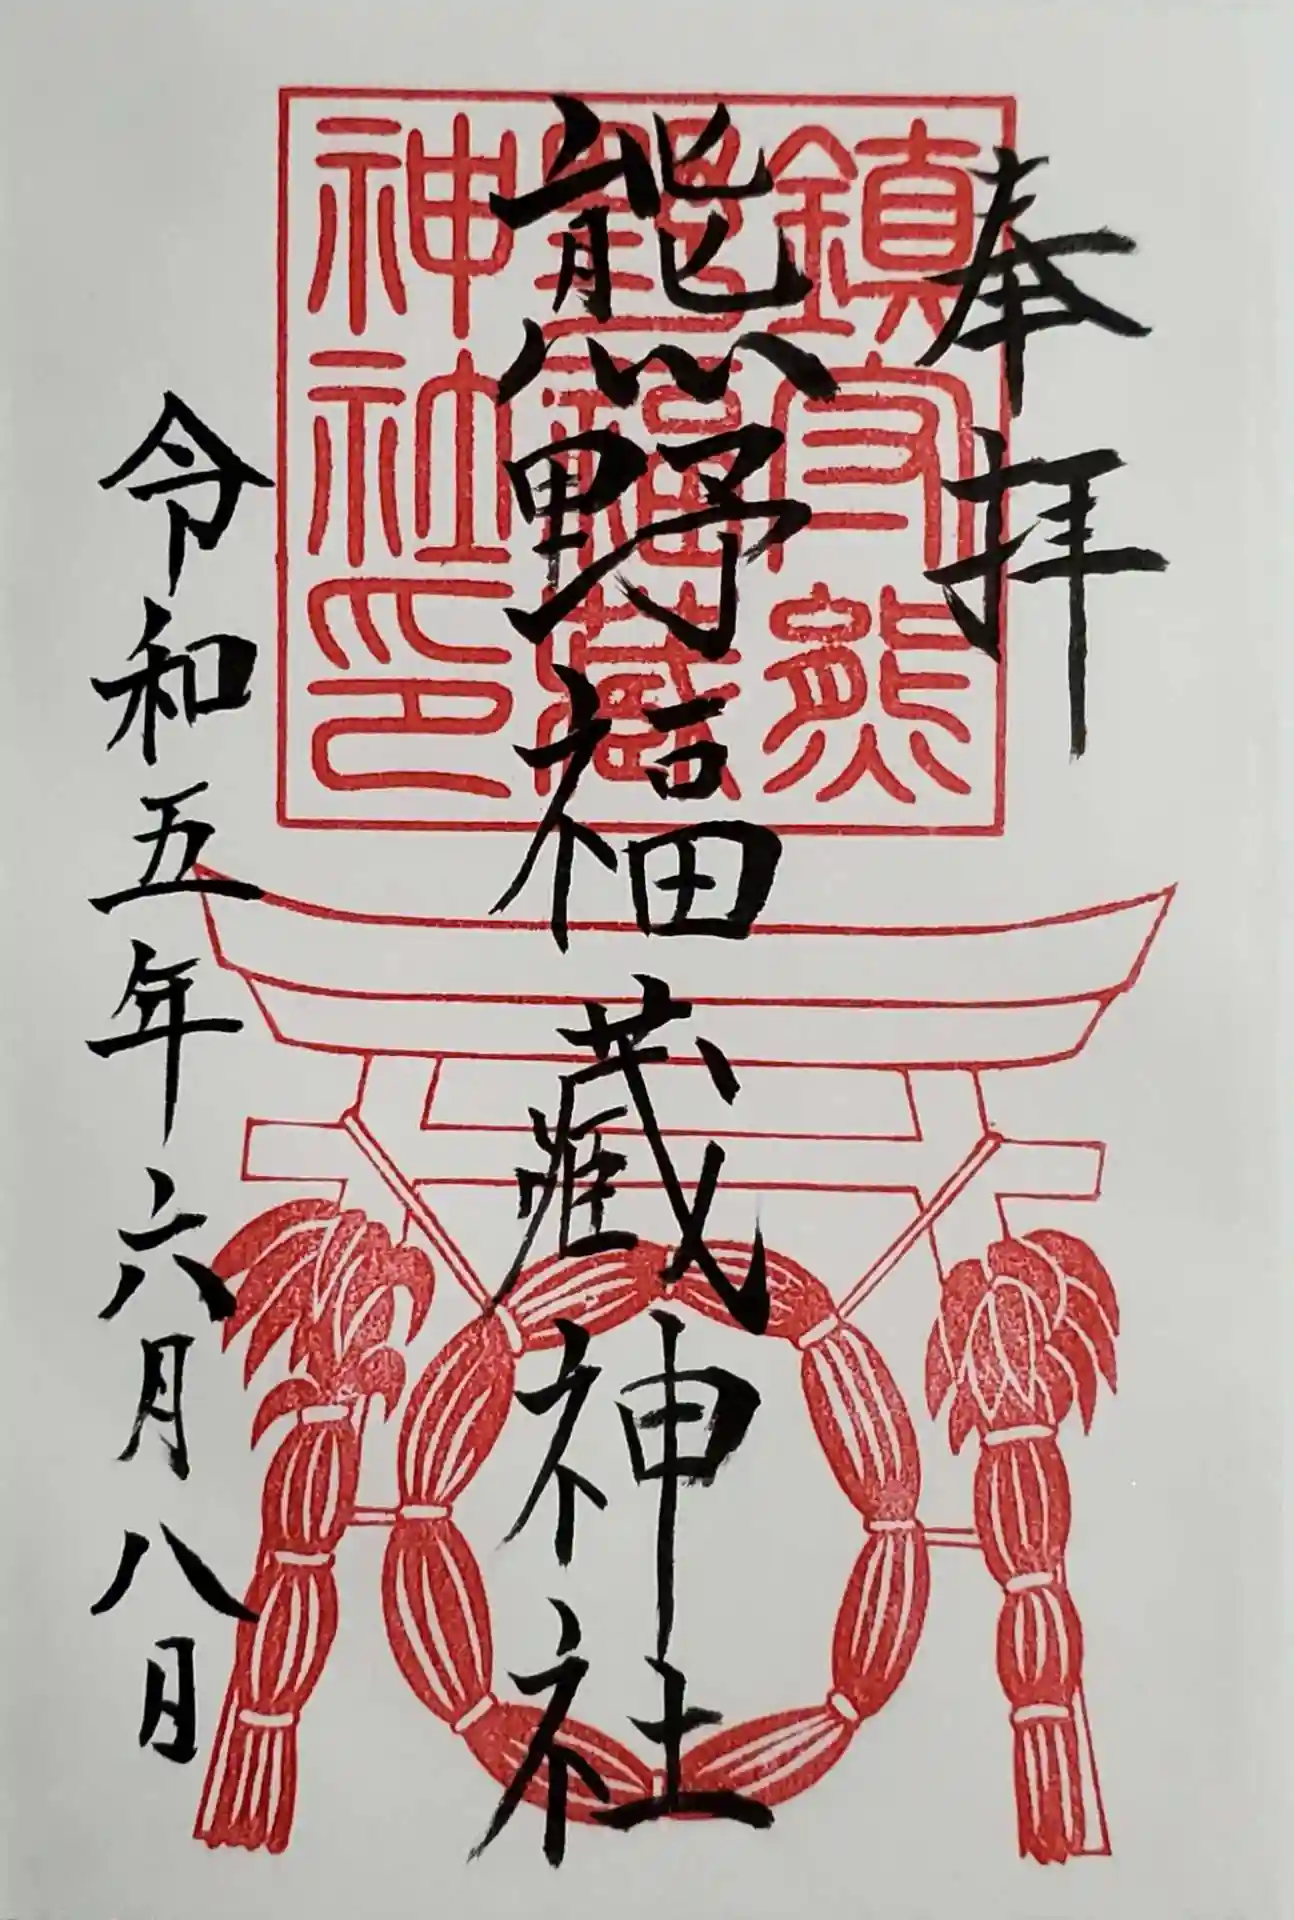 奉拝
熊野福藏神社
令和五年六月八日
鎮守熊
野福藏
神社印